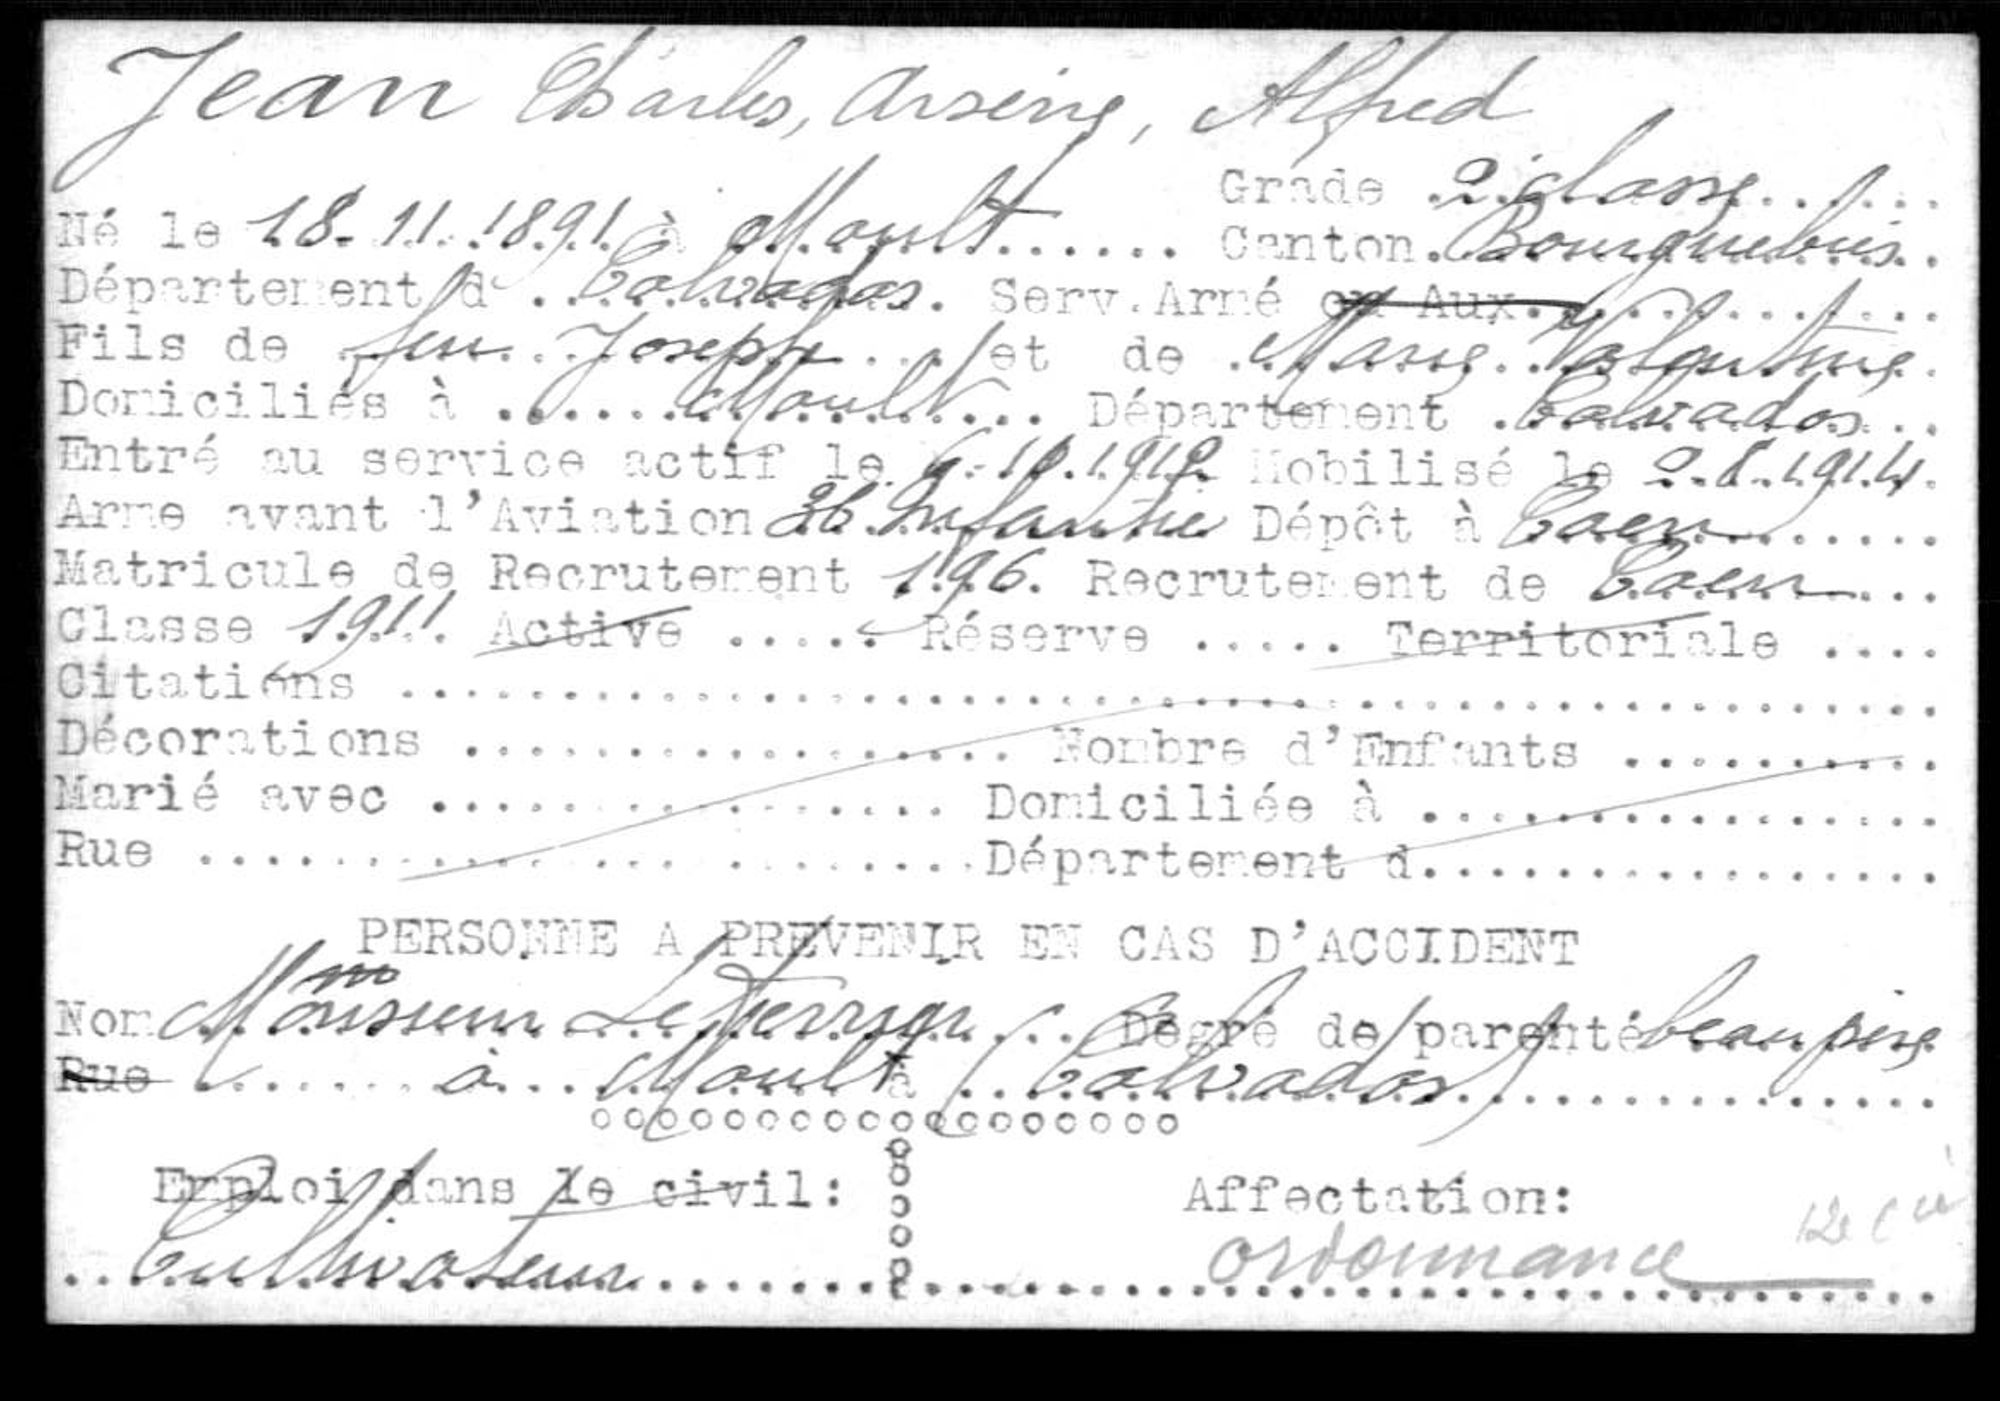 Jean Charles, Arsène, Alfred
Grade .2e classe......
Né le 18.11.1891 à Moult...... Canton.Bourguebus.
Département d . Calvados. Serv.Armé ou Aux..........
Fils de feu Joseph .. et de .Marie Valentine.
Domiciliés à ......Moult... Département .Calvados...
Entré au service actif le 9.10.1912 Mobilisé le 2.8.1914.
Arme avant l'Aviation 36 Infanterie Dépôt à Caen.......
Matricule de Recrutement 196. Recrutement de Caen...
Classe 1911. Active ..... Réserve ..... Territoriale ....
Citations ................................................
Décorations .................. Nombre d'Enfants ..........
Marié avec ................. Domiciliée à .................
Rue ..........................Département d.................
PERSONNE A PREVENIR EN CAS D'ACCIDENT
Nom Monsieur Leterrier ... Degré de parenté beau père
Rue ...... à .. Moult à (Calvados)...............
oooooooooooooooooo
Emploi dans le civil:
Affectation:
..Cultivateur........
ordonnance